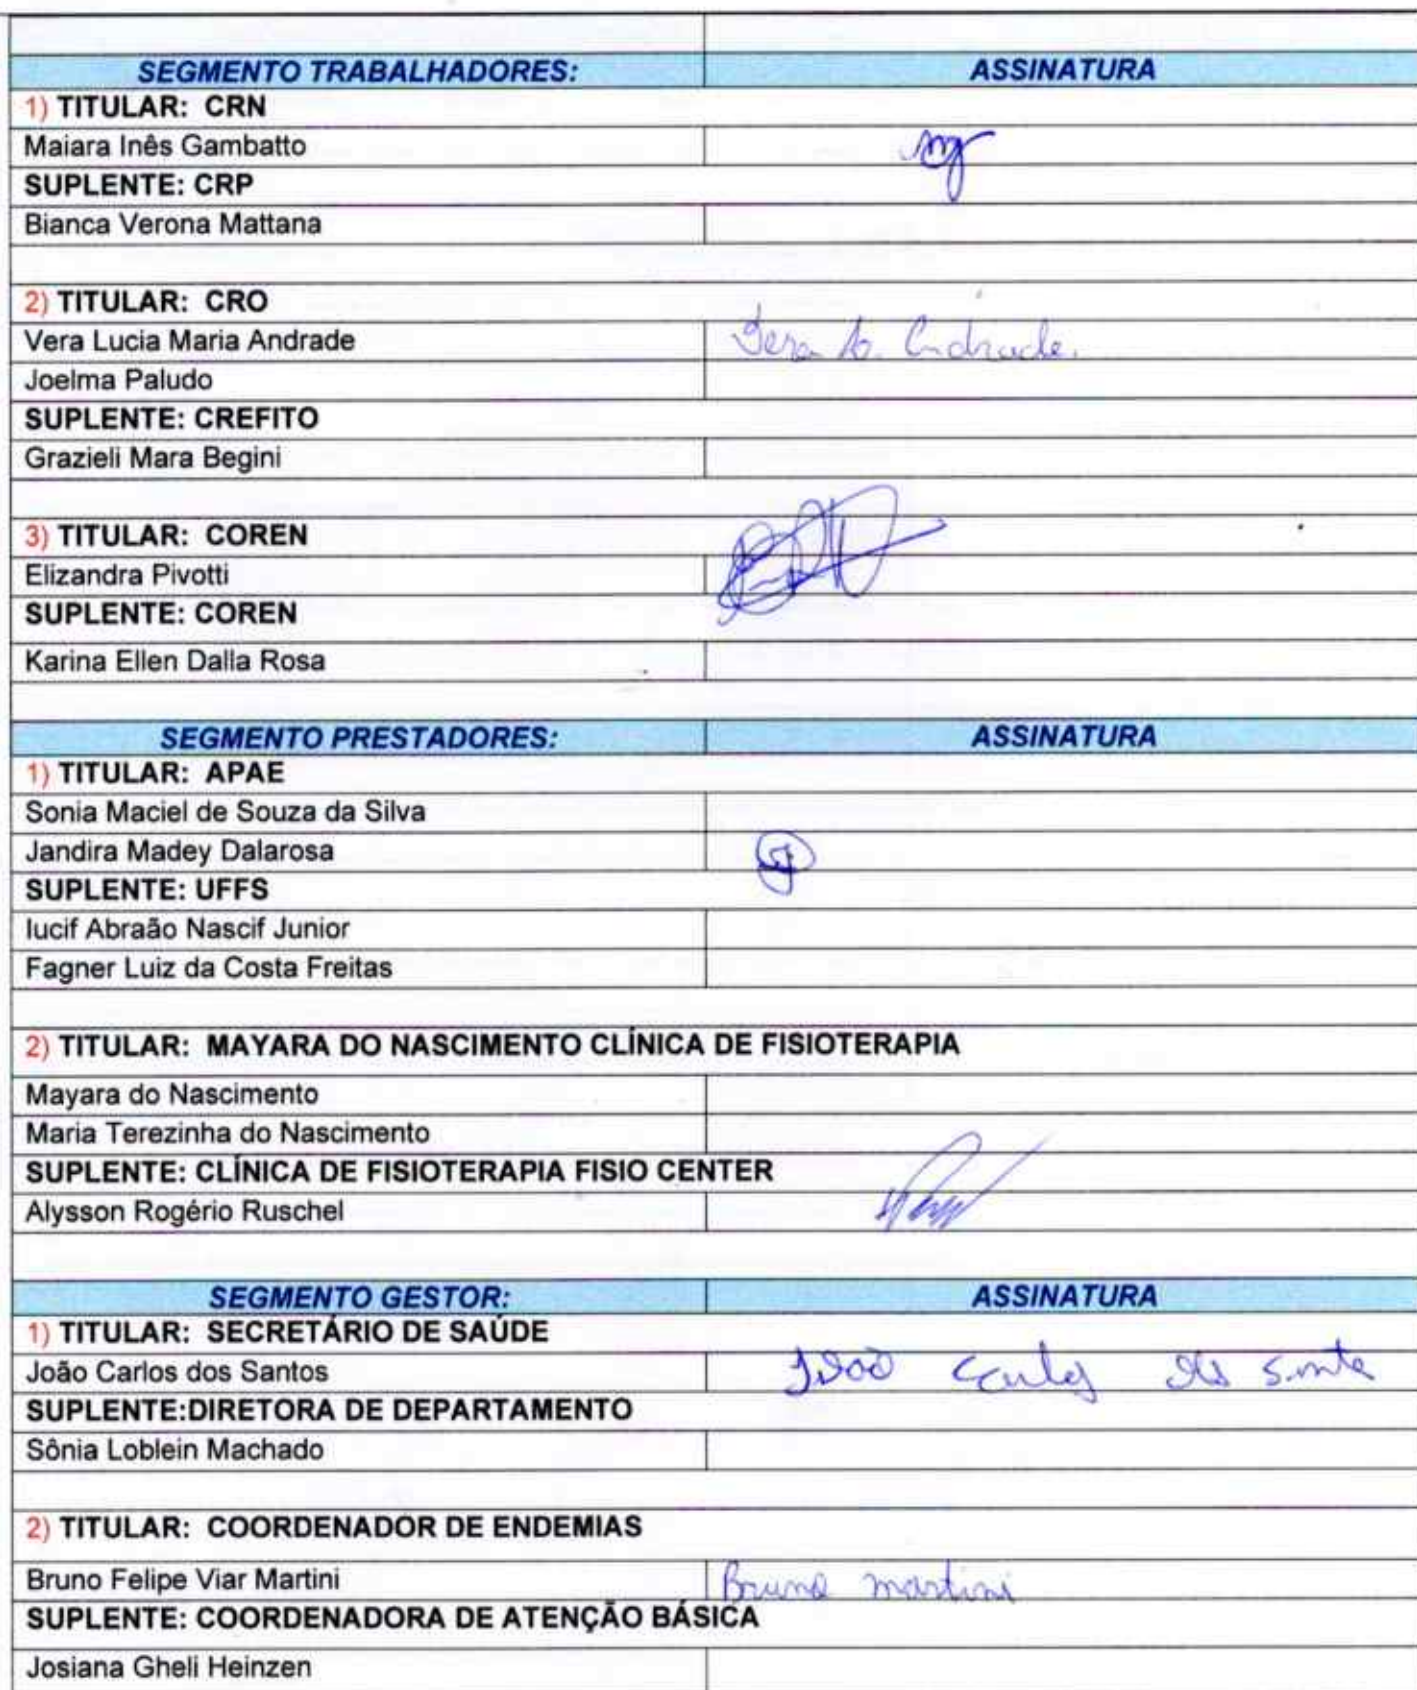 SEGMENTO TRABALHADORES: ASSINATURA
1) TITULAR: CRN
Maiara Inês Gambatto
SUPLENTE: CRP
Bianca Verona Mattana
2) TITULAR: CRO
Vera Lucia Maria Andrade Andrade.
Joelma Paludo
SUPLENTE: CREFITO
Grazieli Mara Begini
3) TITULAR: COREN
Elizandra Pivotti
SUPLENTE: COREN
Karina Ellen Dalla Rosa
SEGMENTO PRESTADORES: ASSINATURA
1) TITULAR: APAE
Sonia Maciel de Souza da Silva
Jandira Madey Dalarosa
SUPLENTE: UFFS
Iucif Abraão Nascif Junior
Fagner Luiz da Costa Freitas
2) TITULAR: MAYARA DO NASCIMENTO CLÍNICA DE FISIOTERAPIA
Mayara do Nascimento
Maria Terezinha do Nascimento
SUPLENTE: CLÍNICA DE FISIOTERAPIA FISIO CENTER
Alysson Rogério Ruschel
SEGMENTO GESTOR: ASSINATURA
1) TITULAR: SECRETÁRIO DE SAÚDE
João Carlos dos Santos João Carlos dos
SUPLENTE:DIRETORA DE DEPARTAMENTO
Sônia Loblein Machado
2) TITULAR: COORDENADOR DE ENDEMIAS
Bruno Felipe Viar Martini Bruno Martini
SUPLENTE: COORDENADORA DE ATENÇÃO BÁSICA
Josiana Gheli Heinzen